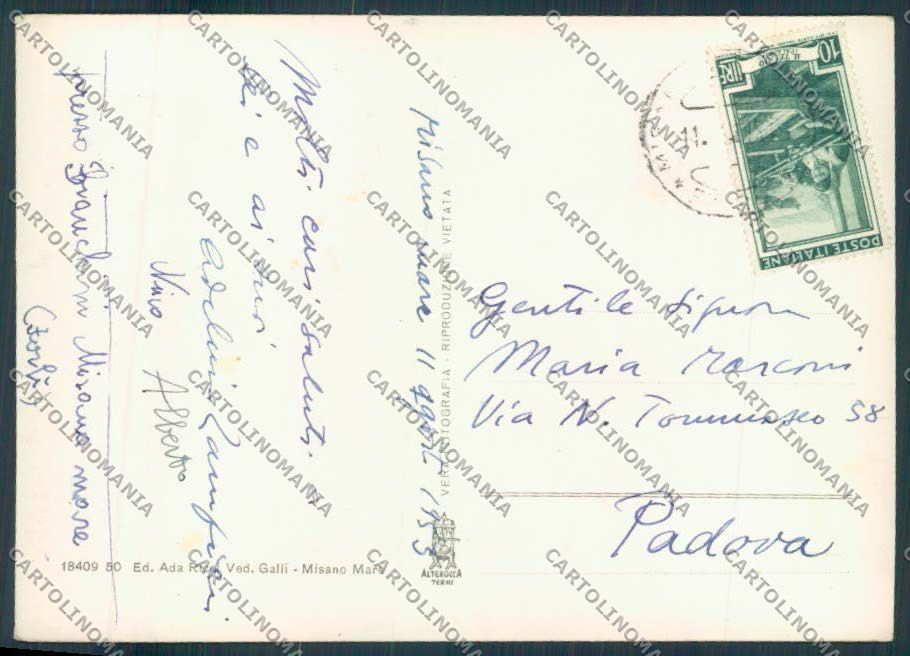 Misano mare 11 agosto 1953
Molti cari saluti a
Lei e ai suoi
Nino
Alberto
presso Bianchini Misano mare
(Forlì)
Gentile Signora
Maria Marconi
Via N. Tommaseo 58
Padova
10 LIRE
POSTE ITALIANE
VERA FOTOGRAFIA - RIPRODUZIONE VIETATA
ALTEROCCA
TERNI
18409 50 Ed. Ada Ved. Galli - Misano Mare
CARTOLINOMANIA